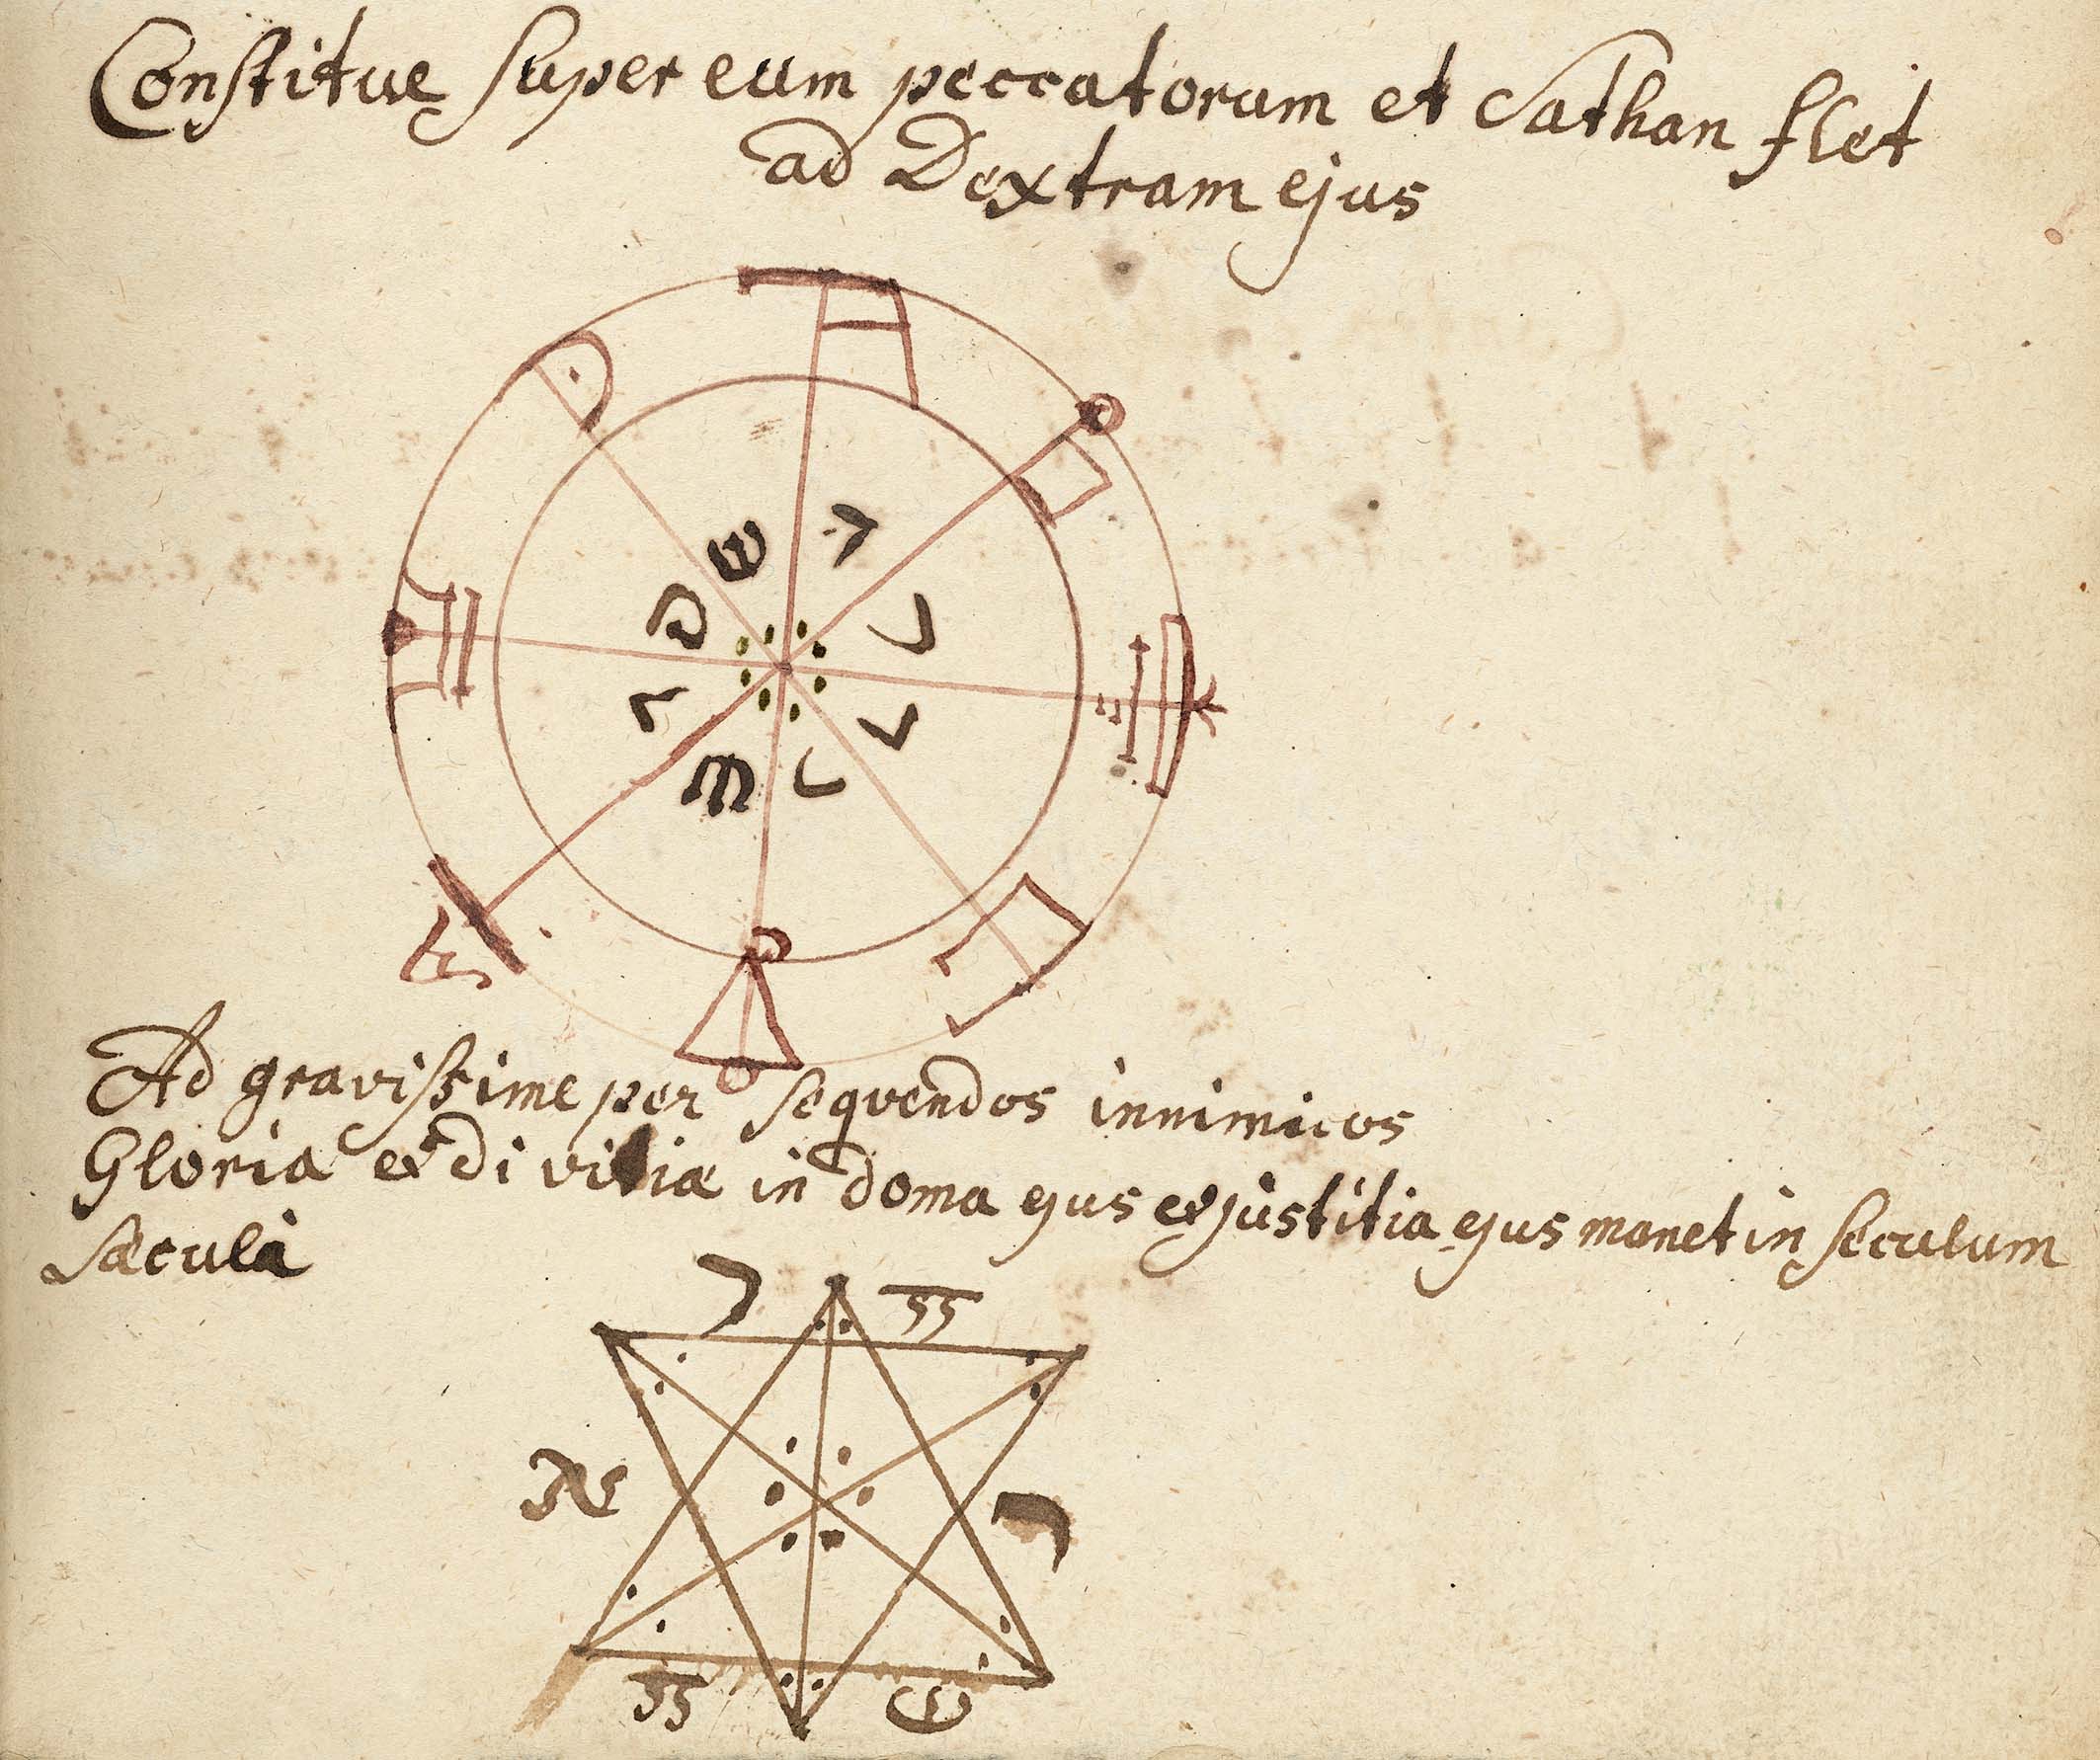 Constitue super eum peccatorum et Sathan stet
ad Dextram ejus
Ad gravissime per sequendos innimicos
Gloria et di vitiæ in doma ejus et justitia ejus manet in seculum
sæculi